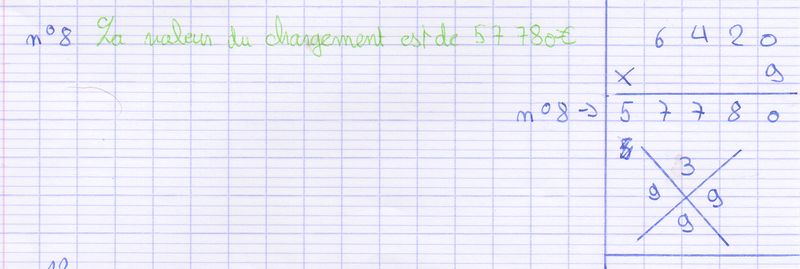 n°8 La valeur du changement est de 57 780€
6 4 2 0
x 9
n°8 → 5 7 7 8 0
3
9 9
9